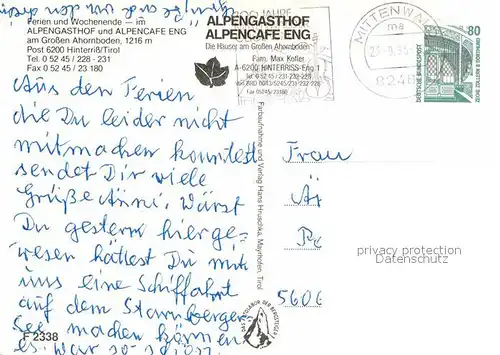 Ferien und Wochenende – im
ALPENGASTHOF und ALPENCAFE ENG
am Großen Ahornboden, 1216 m
Post 6200 Hinterriß/Tirol
Tel. 0 52 45 / 228 - 231
Fax 0 52 45 / 23 180
ALPENGASTHOF
ALPENCAFE ENG
Die Häuser am Großen Ahornboden
Fam. Max Kofler
A-6200 HINTERRISS-Eng 1
Tel. 0 52 45 / 231-232-228
Fax 05245/23180
MITTENWALD
80
DEUTSCHE BUNDESPOST
ZECHE ZOLLERN II DORTMUND
Aus den Ferien
die Du leider nicht
mitmachen konntest
sendet Dir viele
Grüße Änni. Wärst
Du gestern hierge-
wesen hättest Du mit
uns eine Schiffahrt
auf dem Starnberger-
See machen können
es war so schön
Frau
Farbaufnahme und Verlag Hans Hruschka, Mayrhofen, Tirol
privacy protection
Datenschutz
F 2338